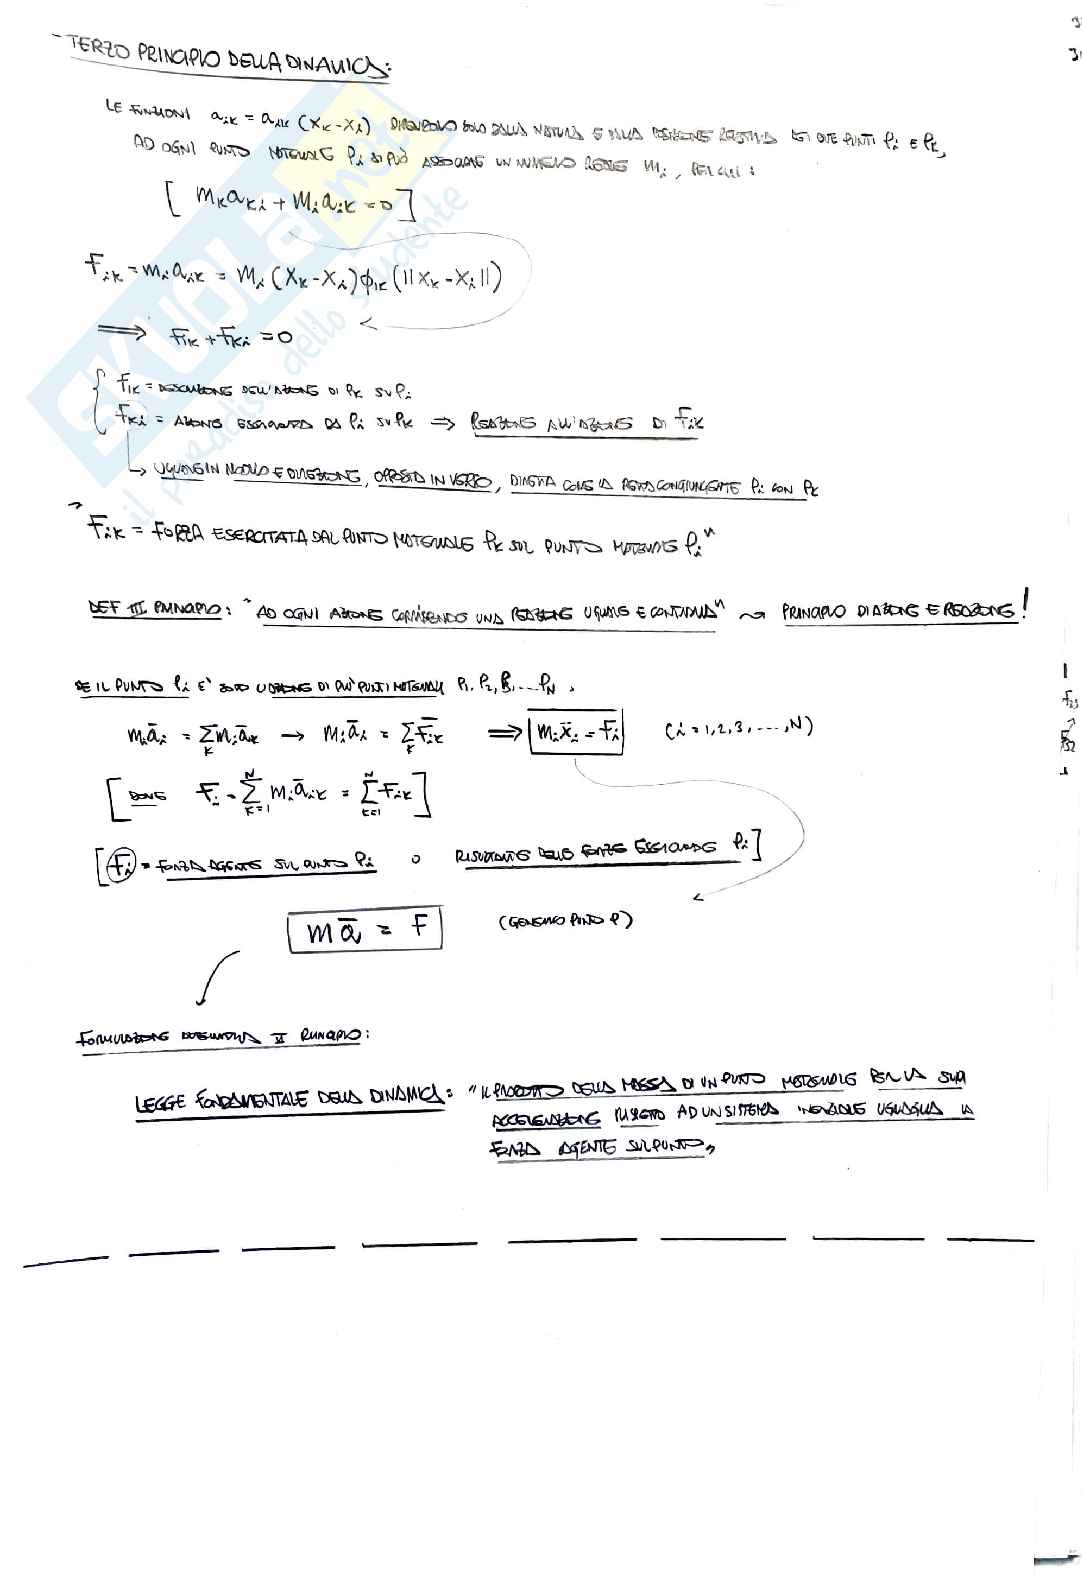 - TERZO PRINCIPIO DELLA DINAMICA:
LE FUNZIONI a_ik = a_ik (x_k - x_i) DIPENDONO SOLO DALLA NATURA E DALLA POSIZIONE RELATIVA DEI DUE PUNTI P_i E P_k,
AD OGNI PUNTO MATERIALE P_i SI PUÒ ASSEGNARE UN NUMERO REALE m_i, PER CUI:
[ m_k a_ki + m_i a_ik = 0 ]
F_ik = m_i a_ik = m_i (x_k - x_i) ϕ_ik (||x_k - x_i||)
⟹ F_ik + F_ki = 0
{ F_ik = DESCRIZIONE DELL'AZIONE DI P_k SU P_i
F_ki = AZIONE ESERCITATA DA P_i SU P_k ⇒ REAZIONE ALL'AZIONE DI F_ik
↳ UGUALE IN MODULO E DIREZIONE, OPPOSTA IN VERSO, DIRETTA COME LA RETTA CONGIUNGENTE P_i CON P_k
"F_ik = FORZA ESERCITATA DAL PUNTO MATERIALE P_k SUL PUNTO MATERIALE P_i"
DEF III PRINCIPIO: "AD OGNI AZIONE CORRISPONDE UNA REAZIONE UGUALE E CONTRARIA" ⇝ PRINCIPIO DI AZIONE E REAZIONE!
SE IL PUNTO P_i E' SOTTO L'AZIONE DI PIU' PUNTI MATERIALI P_1, P_2, P_3, ... P_N,
m_i ā_i = Σ_k m_i ā_ik → m_i ā_i = Σ_k F̄_ik ⟹ m_i ẍ_i = F_i (i = 1,2,3,...,N)
[ DOVE F_i = Σ_{k=1}^{N} m_i ā_ik = Σ_{k=1}^{N} F_ik ]
[ F_i = FORZA AGENTE SUL PUNTO P_i O RISULTANTE DELLE FORZE P_i ]
m ā = F (GENERICO PUNTO P)
FORMULAZIONE II PRINCIPIO:
LEGGE FONDAMENTALE DELLA DINAMICA: "IL PRODOTTO DELLA MASSA DI UN PUNTO MATERIALE PER LA SUA
ACCELERAZIONE RISPETTO AD UN SISTEMA INERZIALE UGUAGLIA LA
FORZA AGENTE SUL PUNTO"
SKUOLA.net
il paradiso dello studente